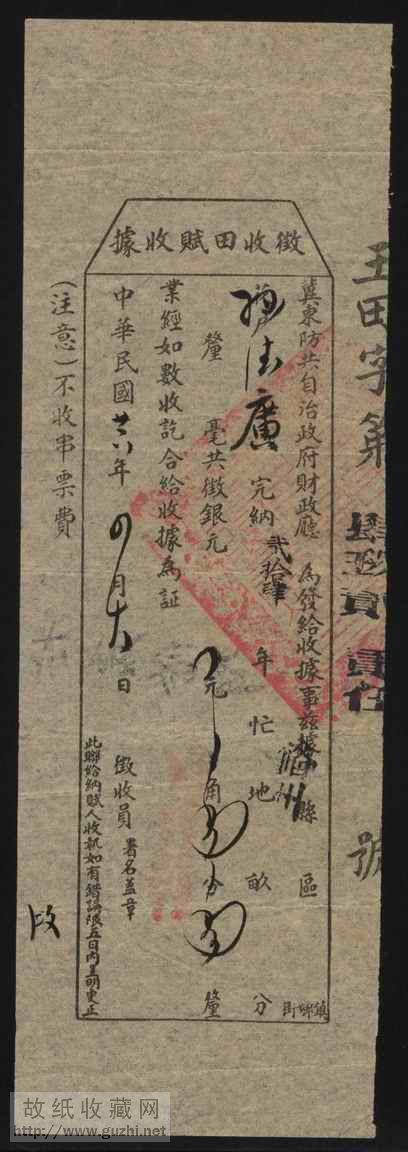 玉田字第
號
徵收田賦收據
冀東防共自治政府財政廳 為發給收據事茲據 縣 區 鎮鄉街
德廣 完納 貳拾肆 年 忙 地 畝 分
釐 毫共徵銀元 元 角 分 釐
業經如數收訖合給收據為証
中華民國 年 四 月 日
徵收員 署名蓋章
此聯給納賦人收執如有錯誤限五日內呈明更正
(注意)不收串票費
故纸收藏网
http://www.guzhi.net